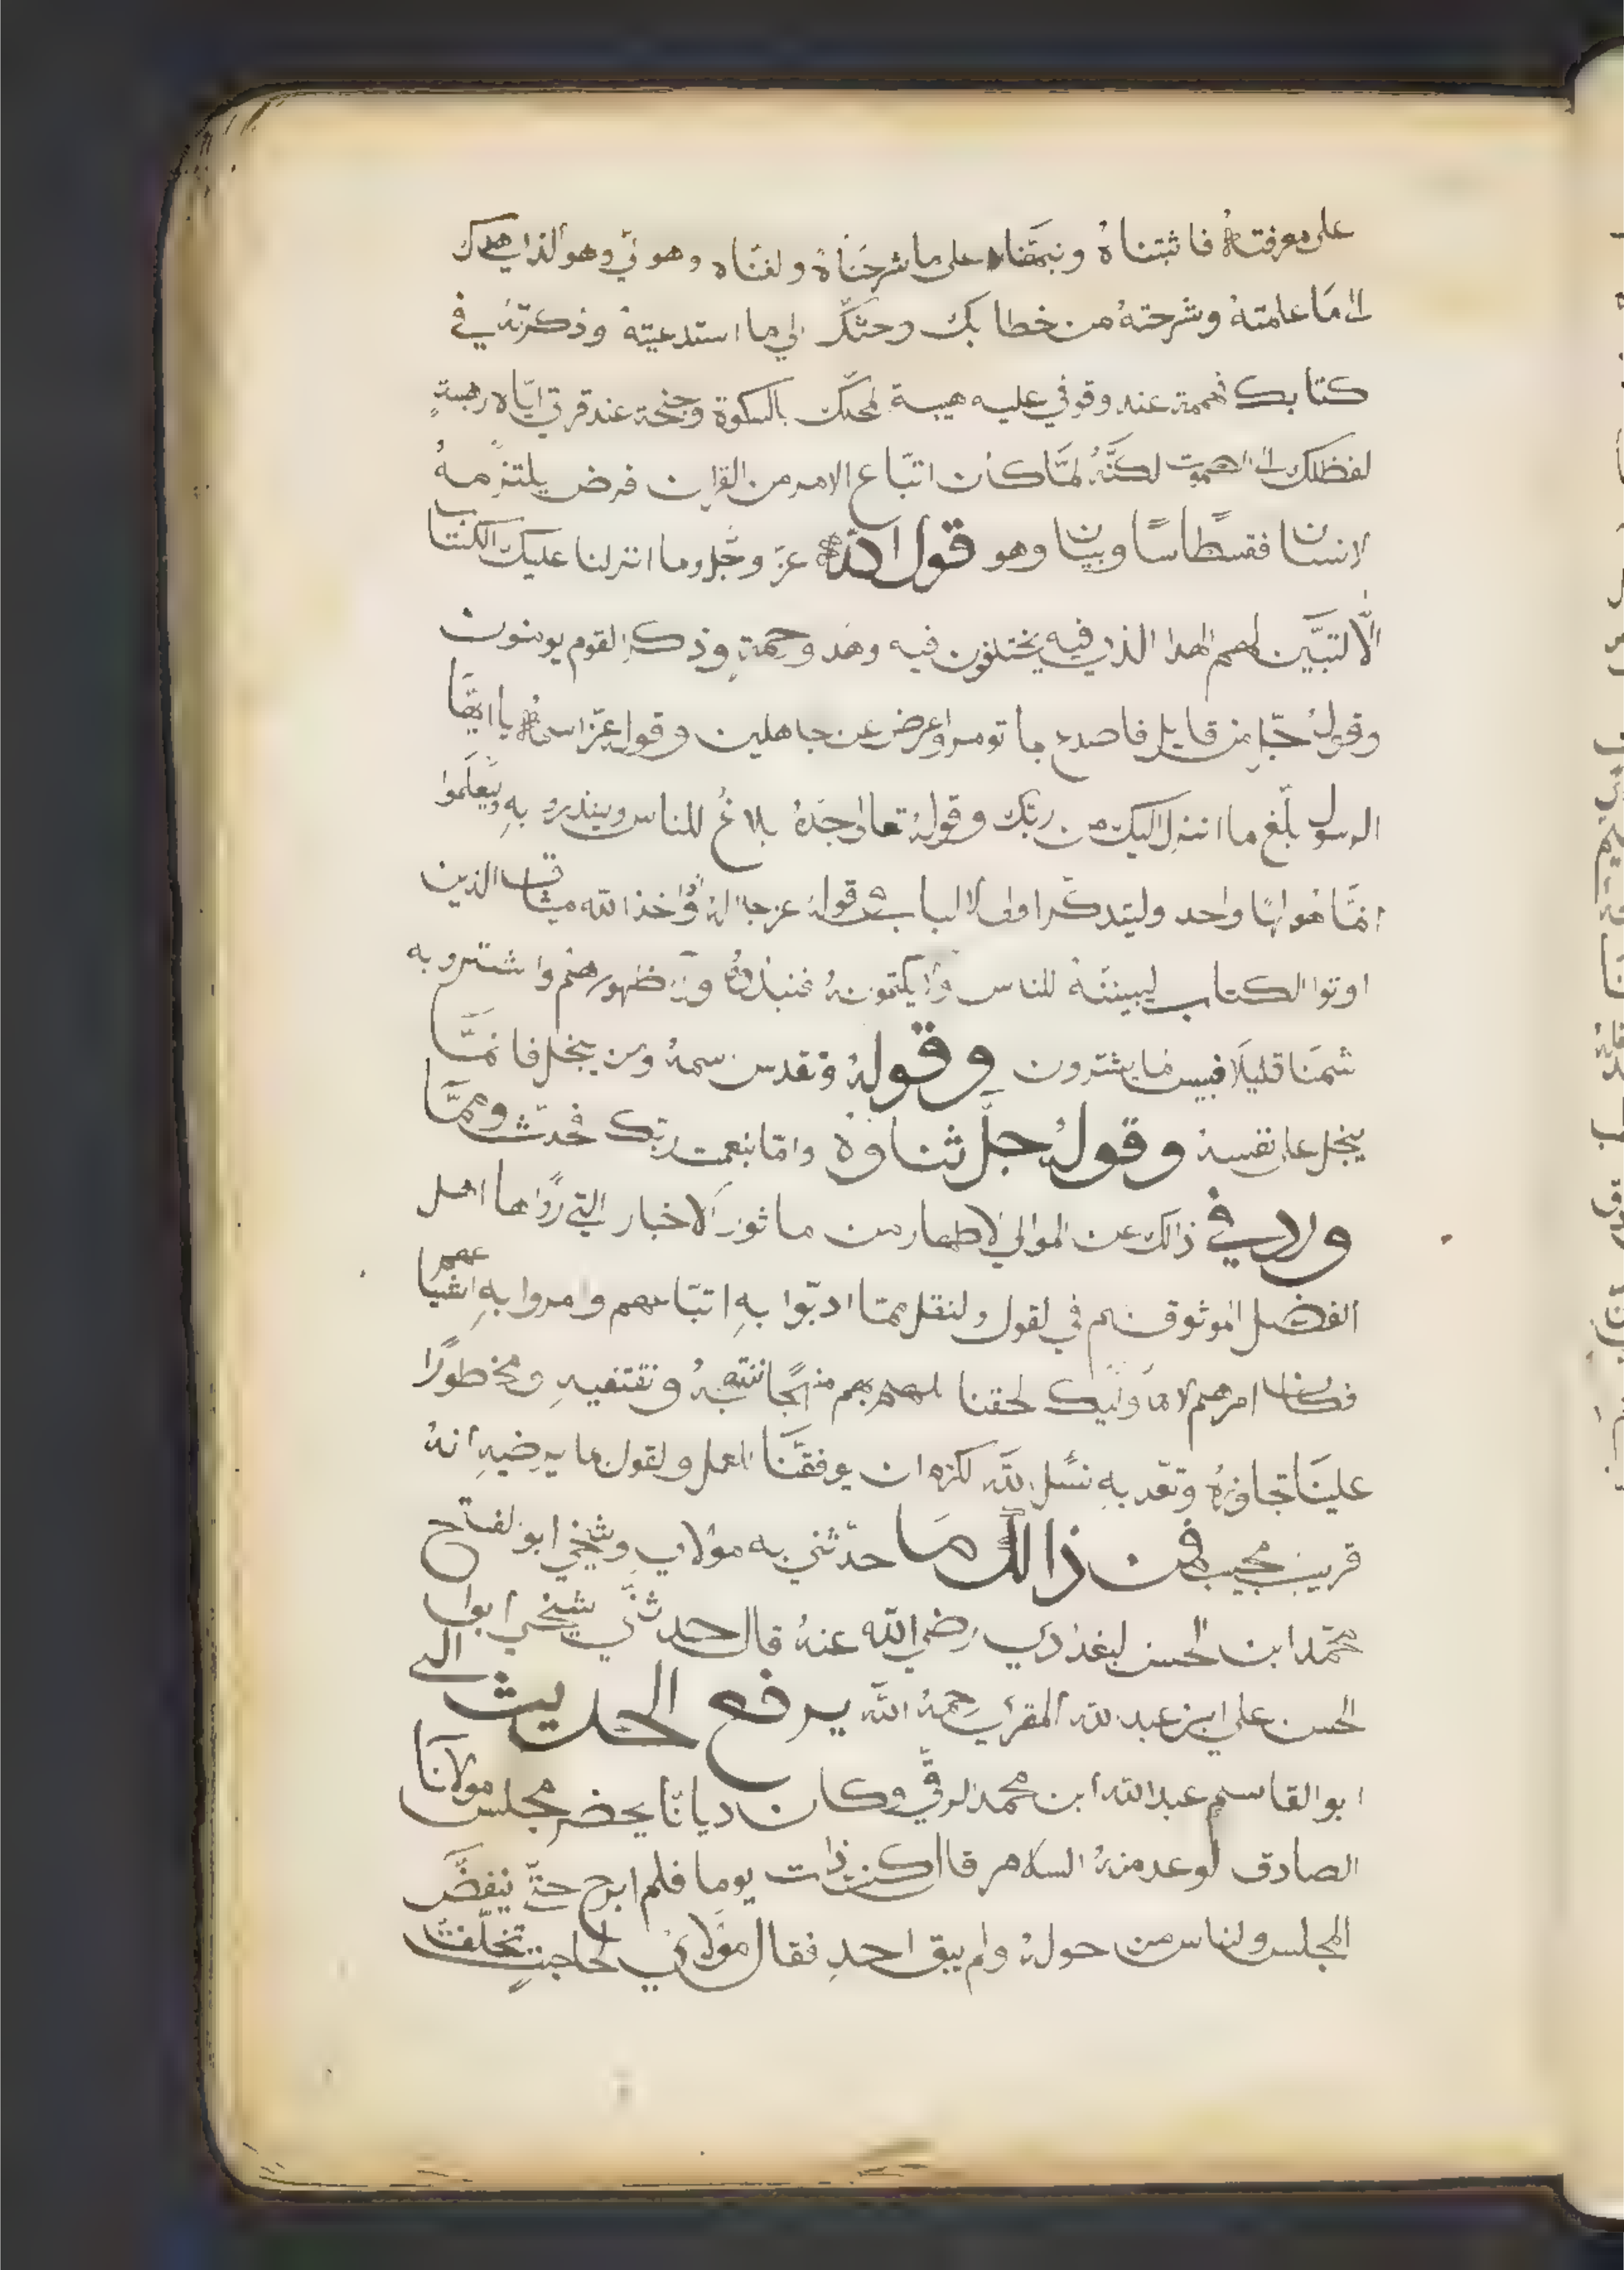 على معرفتهُ فاثبتناهُ ونبهّناه على ما شرحناهُ ولفناه وهو وهو الذاي
الى مَا علمتهُ وشرحتهُ من خطابك وحثكّ الى ما استدعيتهُ وذكرتهُ في
كتابك عند وقوفي عليه هيبة لمحلك بالسكوة عند قرتي ايّاه رهبةٍ
لفظلك الى الصموت لكنَّهُ لمَّا كان اتبّاع الامر من القران فرض يلتزمهُ
لانسان فقسطًاسًا وبيان وهو قول الله عزّ وجّل وما انزلنا عليك الكتاب
الّا لتبيّن لهم الهدا الذي فيه يختلفون فيه وهد ورحمةٍ وذكر القوم يومنون
وقولهُ جّل من قايل فاصدع بما تومر واعرض عن جاهلين وقوله عزّ اسمهُ يا ايهّا
الرسول بلّغ ما انزل اليك من ربّك وقولهُ تعالى جدّهُ بلاغٌ للناس وينذرو بهِ وليعلموا
انمَّا هو الهًا واحد وليتدكّر اولى لالباب قولهُ عز جلالهُ واخذ الله ميثاق الذين
اوتوا الكتاب ليبيننّهُ للناس ولا يكتمونهُ فنبذوهُ ورا ظهورهم واشترو به
ثمنَا قليلَا فبيس ما يشترون وقولهُ وتقدس سمهُ ومن يبخل فانمَّا
يبخل على نفسهُ وقولهُ جلّ ثناوهُ وامّا بنعمت ربّك فحّدث وممَّا
ورد في ذالك عن الموالي لاطهار من ماثور الاخبار التي رواها اهل
الفضل الموثوق بهم في لقول ولنقل ممّا ادبّوا بهِ اتبّاعهم وامروا بهِ اشيّاعهم
فكان امرهم لاولئيك لحقنا بهم منهجًا ننتهجهُ ونقتفيهِ ومخطورًا
علينَا تجاوزهُ وتعّد بهِ نسّل الله لكرم ان يوفقّنَا للعمل ولقول بما يرضيهِ انهُ
قريب مجيب فمن ذالك مَا حدّثني به مولاي وشيخي ابو لفتاح
محمّد ابن الحسن لبغدادي رضي الله عنهُ قال حدثنّي شيخي ابوا
الحسن علي ابن عبد لله المقراي رحمهُ الله يرفع الحديث الى
ابو القاسم عبد الله ابن محمد الرقّي وكان ديانّا يحضر مجلس مولانَا
الصادق لوعد منهُ السلام قال كنت ذات يوما فلم ابرح حتّى ينفضَّ
المجلس ولناس من حولهُ ولم يبق احدٍ فقال مولاي لحاجتٍ تخلّفت